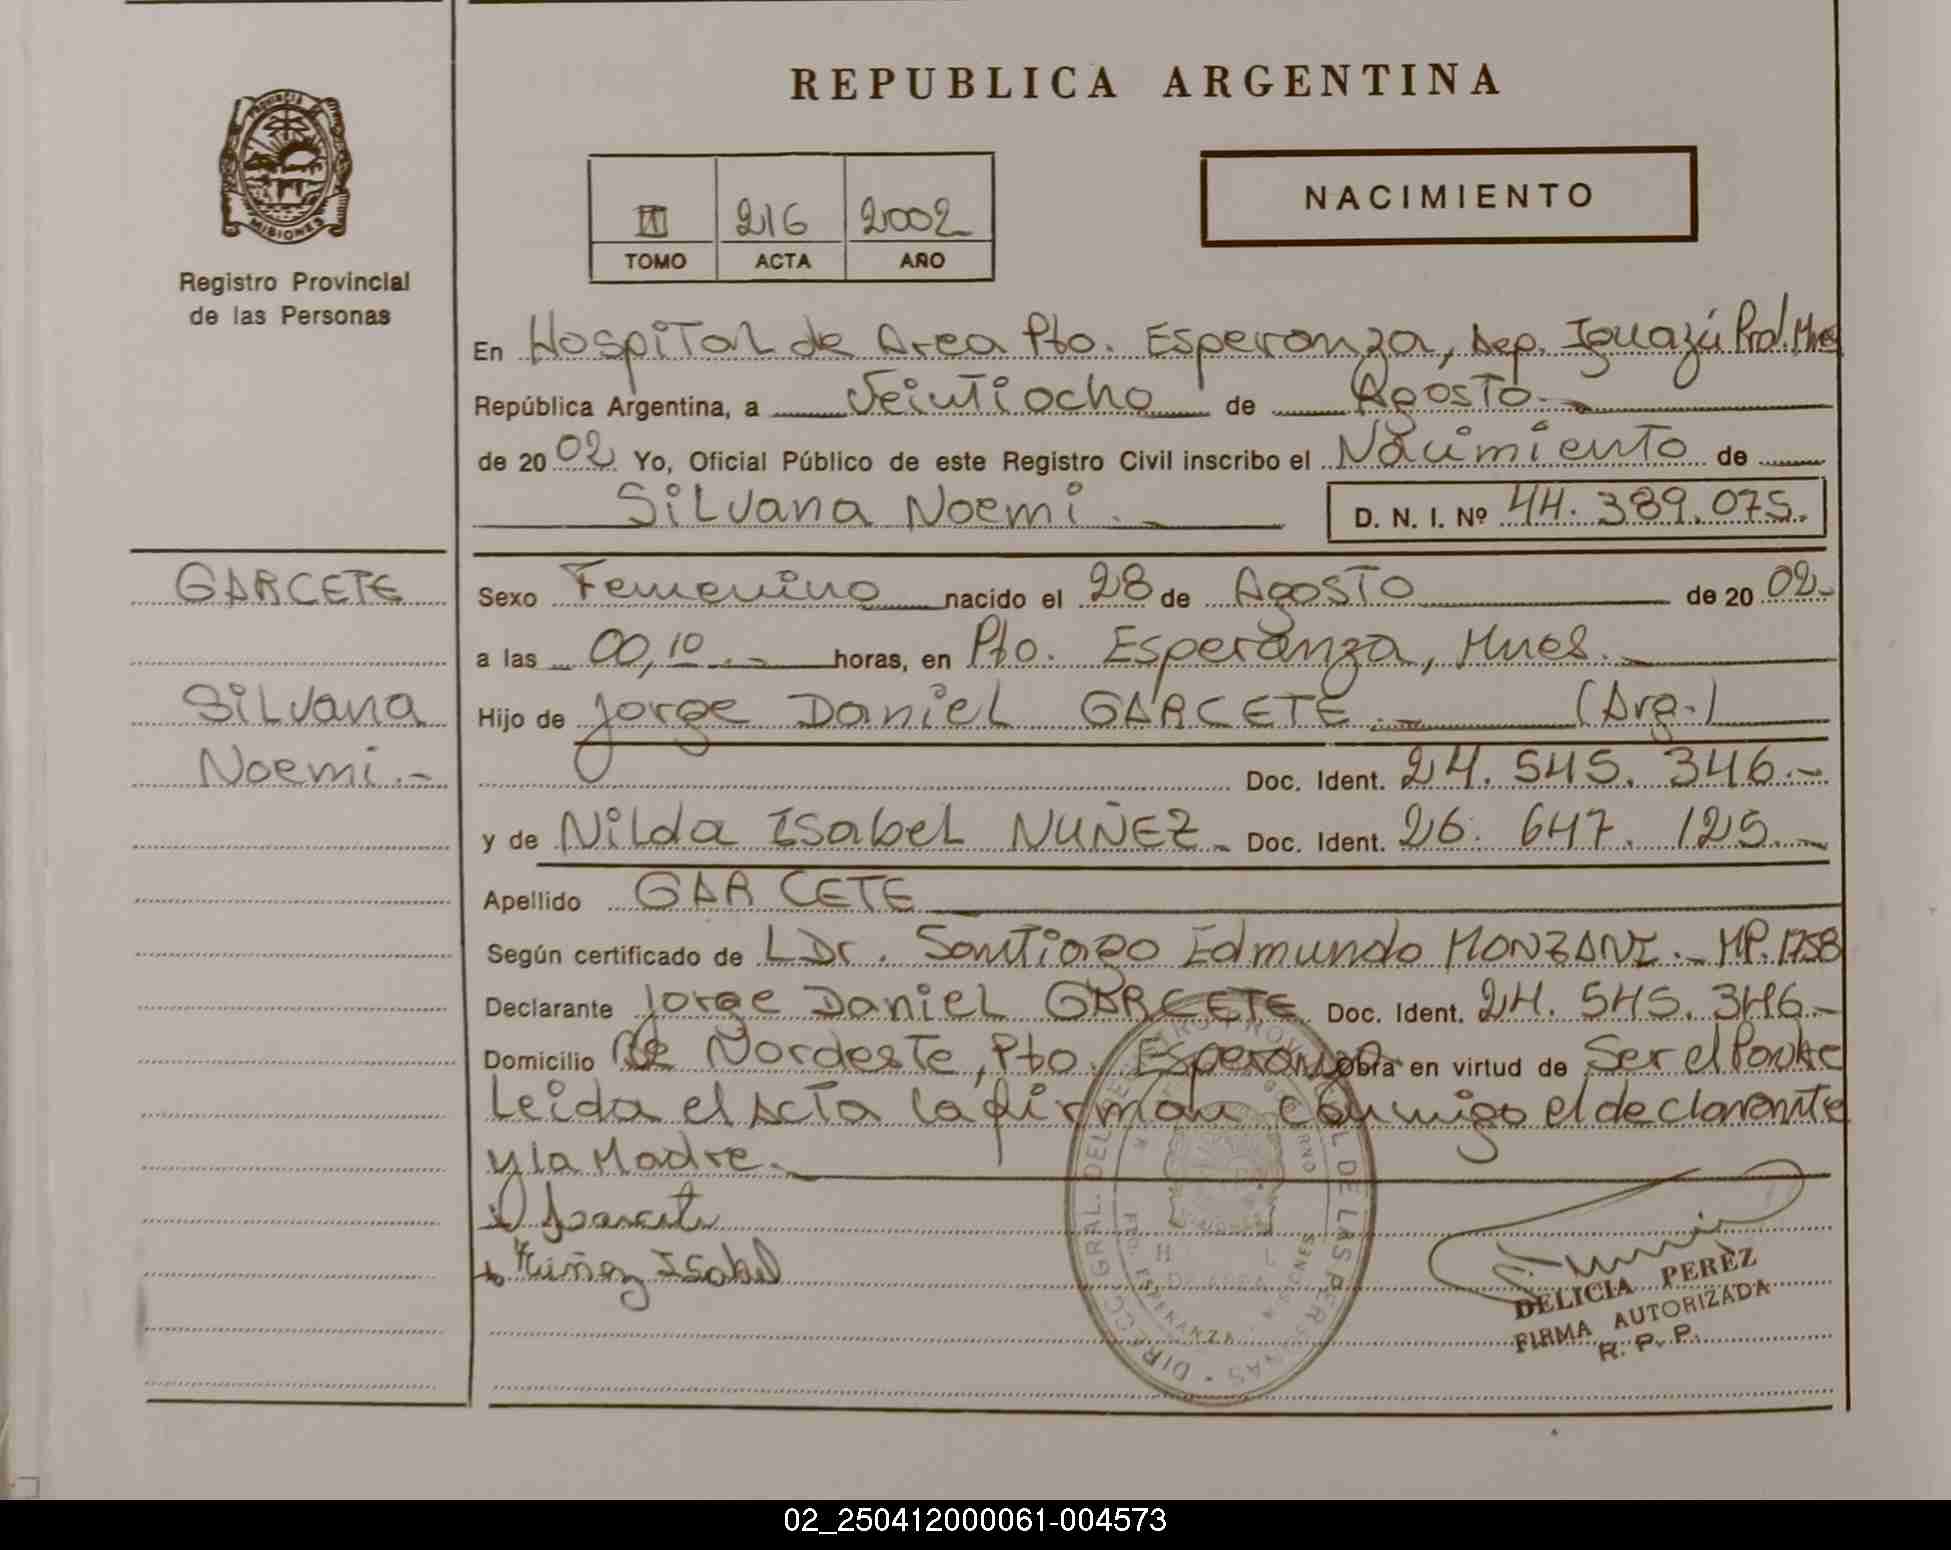 REPUBLICA ARGENTINA
PROVINCIA
MISIONES
Registro Provincial
de las Personas
NACIMIENTO
216 2002
TOMO ACTA AÑO
En Hospital de Area Pto. Esperanza, Dep. Iguazú
República Argentina, a Veintiocho de Agosto.-
de 2002 Yo, Oficial Público de este Registro Civil inscribo el Nacimiento de
Silvana Noemi.- D. N. I. Nº 44.389.075.
GARCETE
Silvana
Noemi.-
Sexo Femenino nacido el 28 de Agosto de 2002-
a las 00,10.- horas, en Pto. Esperanza, Mnes.-
Hijo de Jorge Daniel GARCETE.- (Arg.)
Doc. Ident. 24.545.346.-
y de Nilda Isabel NUÑEZ- Doc. Ident. 26.647.125.-
Apellido GARCETE
Según certificado de Dr. Santiago Edmundo MONZANI.- MP.1758
Declarante Jorge Daniel GARCETE Doc. Ident. 24.545.346.-
Domicilio Nordeste, Pto. Esperanza obra en virtud de Ser el Padre
Leida el Acta la firman conmigo el declarante
y la Madre.-
Nuñez Isabel
DIRECC. GRAL. DEL REGISTRO PROVINCIAL DE LAS PERSONAS
DELICIA PEREZ
FIRMA AUTORIZADA
R. P. P.
02_250412000061-004573